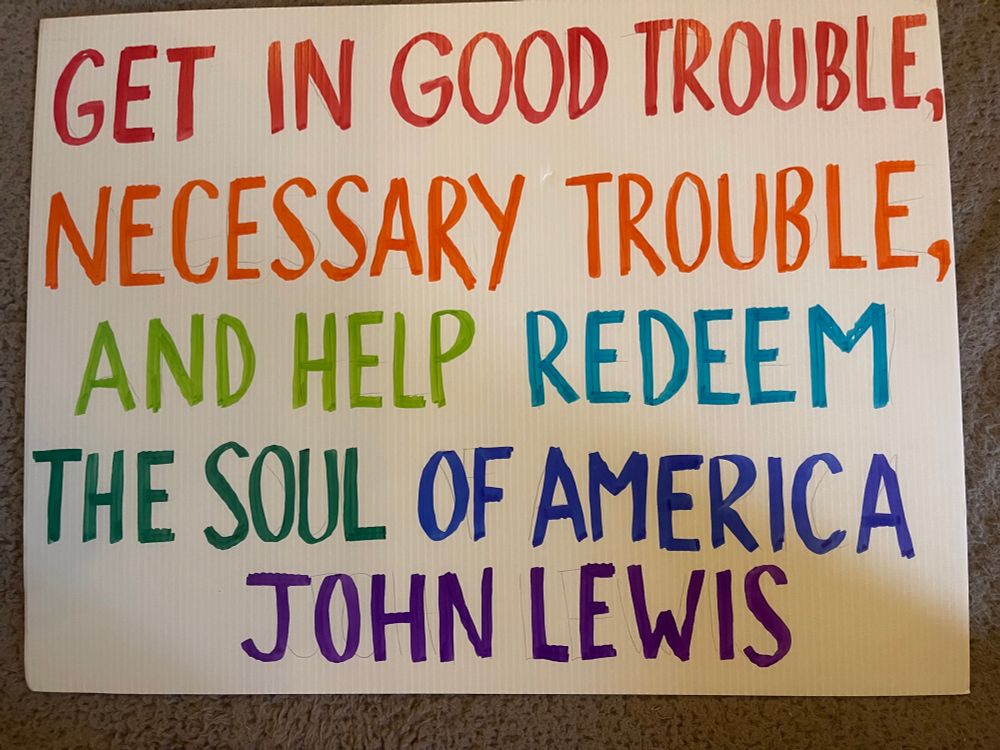 GET IN GOOD TROUBLE,
NECESSARY TROUBLE,
AND HELP REDEEM
THE SOUL OF AMERICA
JOHN LEWIS